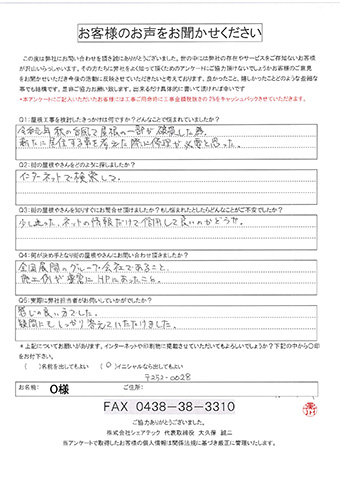 お客様のお声をお聞かせください
この度は弊社にお問い合わせを頂き誠にありがとうございました。世の中には弊社の存在やサービスをご存知ないお客様
が沢山いらっしゃいます。その方たちに弊社をよく知って頂くためのアンケートにご協力頂けないでしょうかお客様のご意見
をお聞かせいただき今後の活動に反映させていただきたいと考えております。良かったこと、嬉しかったことどのような些細な
事でも結構です。是非ご協力お願い致します。出来るだけ具体的に書いて頂ければ幸いです
*本アンケートにご記入いただいたお客様には工事ご用命時に工事金額税抜きの2%をキャッシュバックさせていただきます。
Q1:屋根工事を検討したきっかけは何ですか?どんなことで悩まれていましたか?
令和元年秋の台風で屋根の一部が破損した為。
新たに居住する事を考えた際に修理が必要と思った。
Q2:街の屋根やさんをどのように探しましたか?
インターネットで検索して。
Q3:街の屋根やさんを知りすぐにお問合せ頂けましたか?もし悩まれたとしたらどんなことがご不安でしたか?
少し迷った。ネットの情報だけで信用して良いのかどうか。
Q4:何が決め手となり街の屋根やさんにお問い合わせ頂きましたか?
全国展開のグループ会社であること。
施工例が豊富にHPにあったこと。
Q5:実際に弊社担当者がお伺いしていかがでしたか?
感じの良い方でした。
疑問にもしっかり答えていただけました。
*上記についてお願いがあります。インターネットや印刷物に掲載させていただいてもよろしいでしょうか?下記の中から〇印
をお付下さい。
( )名前を出してもよい (〇)イニシャルなら出してもよい
〒252-0028
お名前: O様 ご住所:
FAX 0438-38-3310
ご協力ありがとうございました。
株式会社シェアテック 代表取締役 大久保 誠二
当アンケートで取得したお客様の個人情報は関係法規に基づき適正に管理いたします。